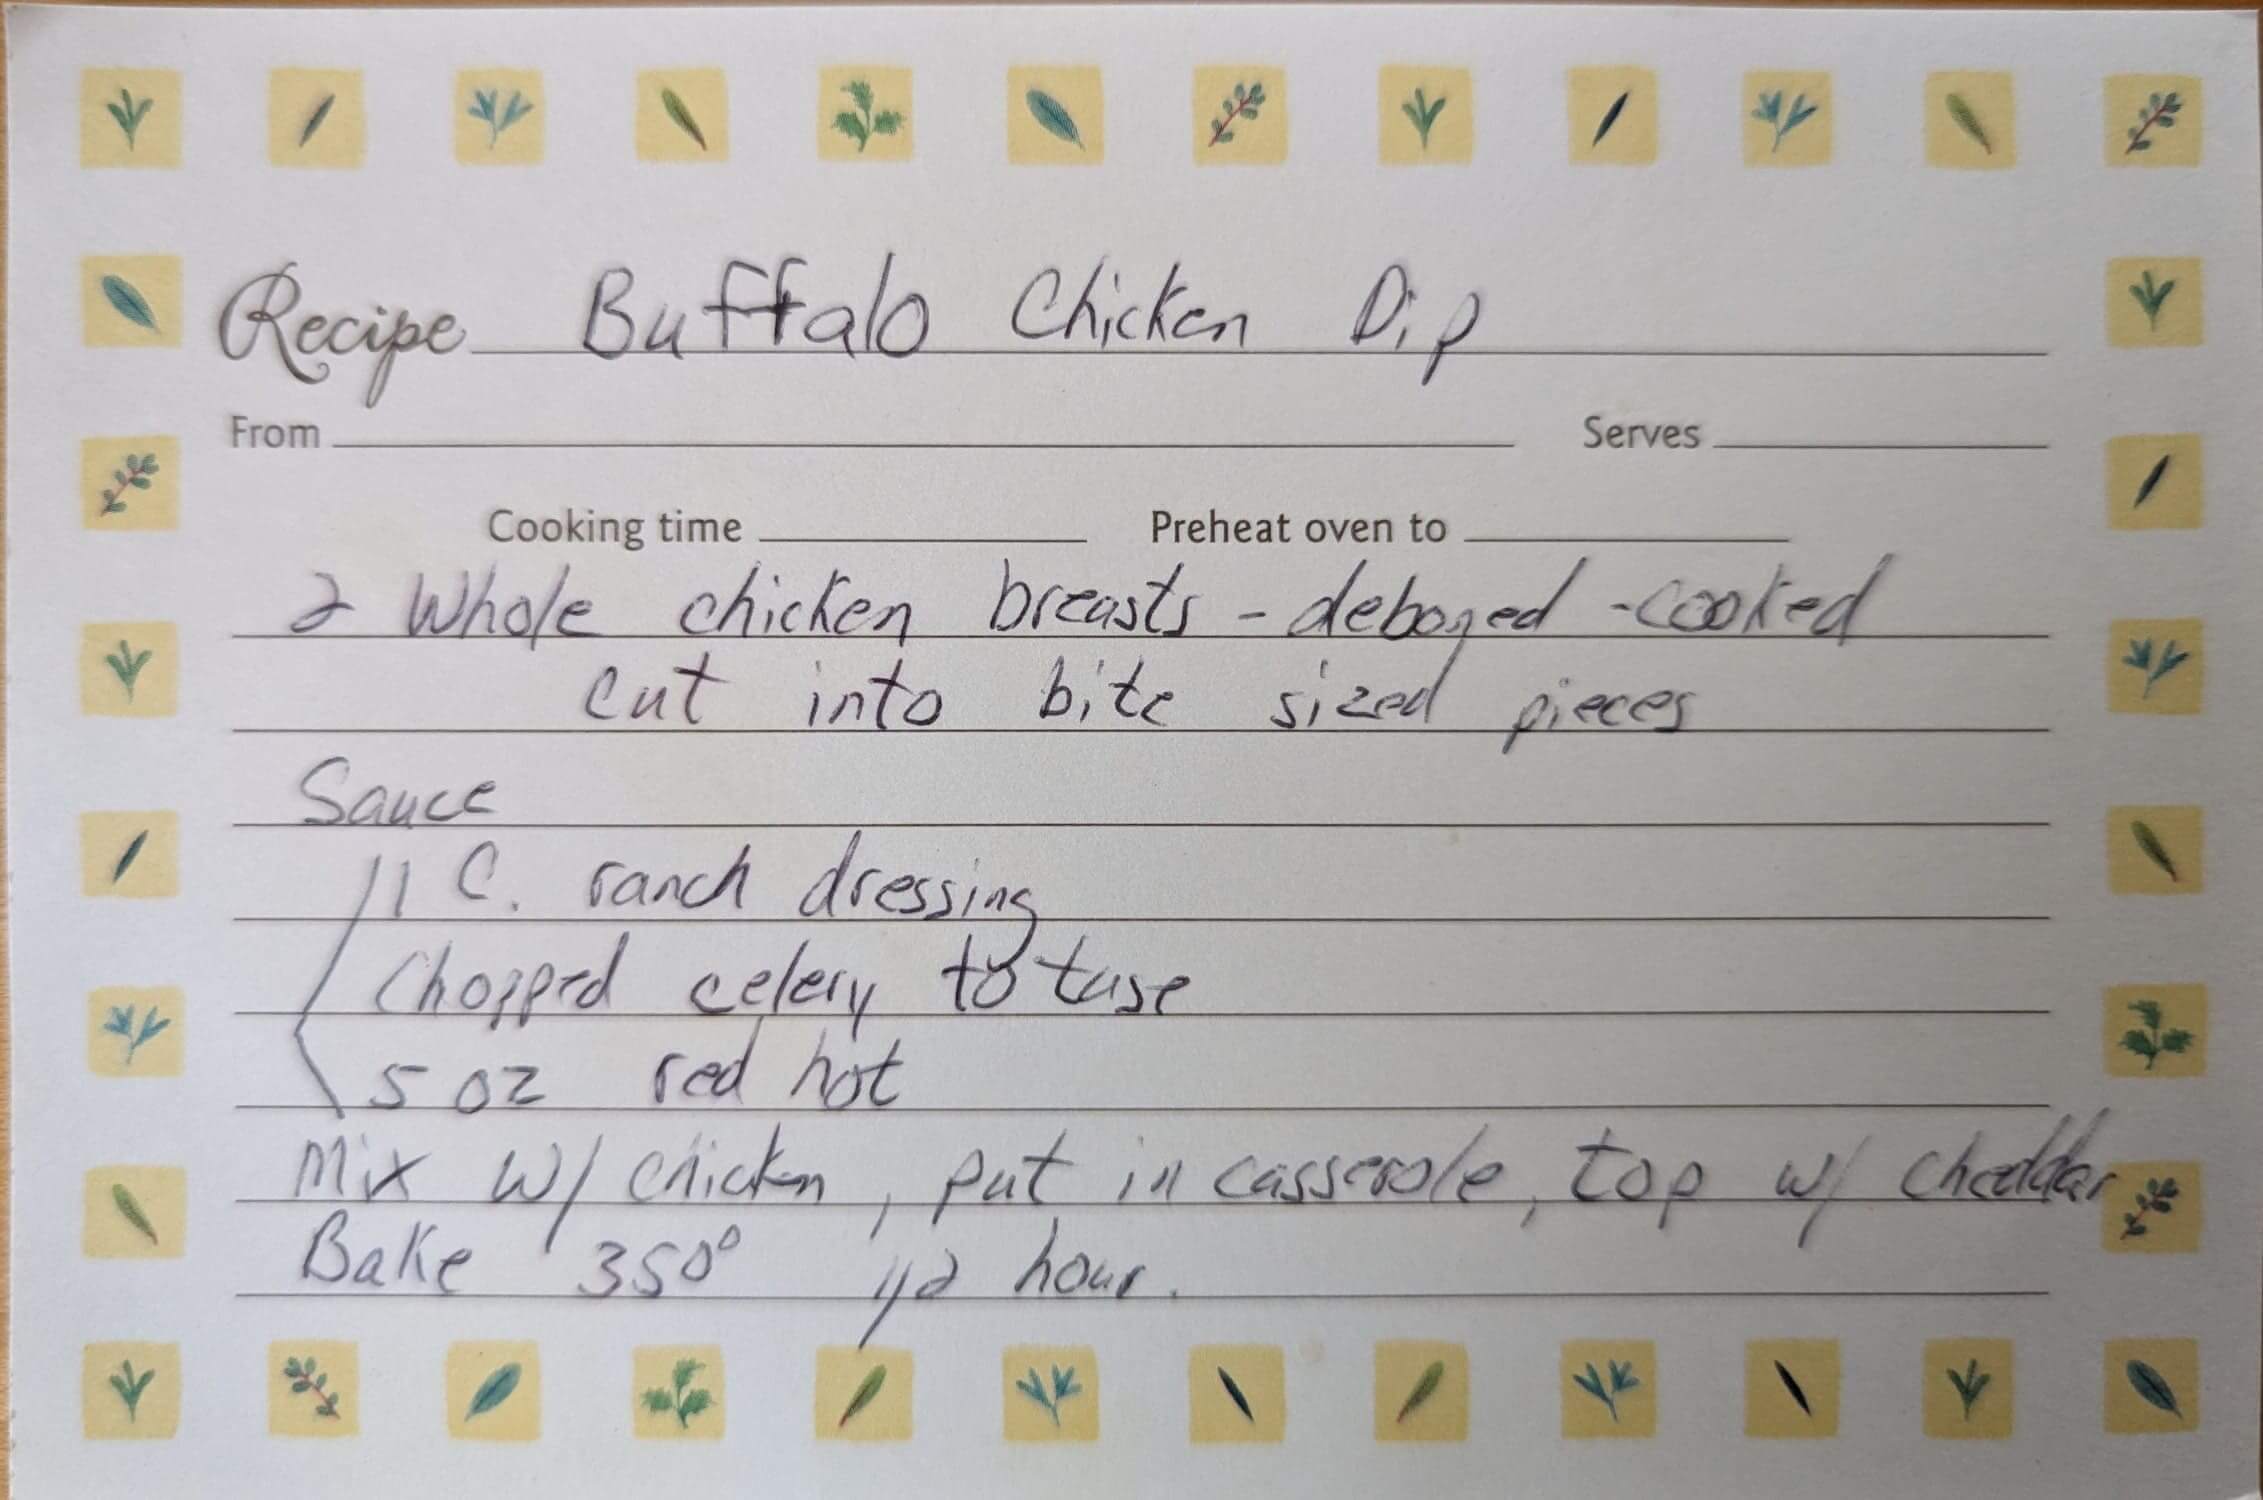 Recipe Buffalo Chicken Dip
From Serves
Cooking time Preheat oven to
2 Whole chicken breasts - deboned - cooked
cut into bite sized pieces
Sauce
1 C. ranch dressing
Chopped celery to
5 oz red hot
Mix w/ chicken, put in casserole, top w/ cheddar
Bake 350° 1/2 hour.